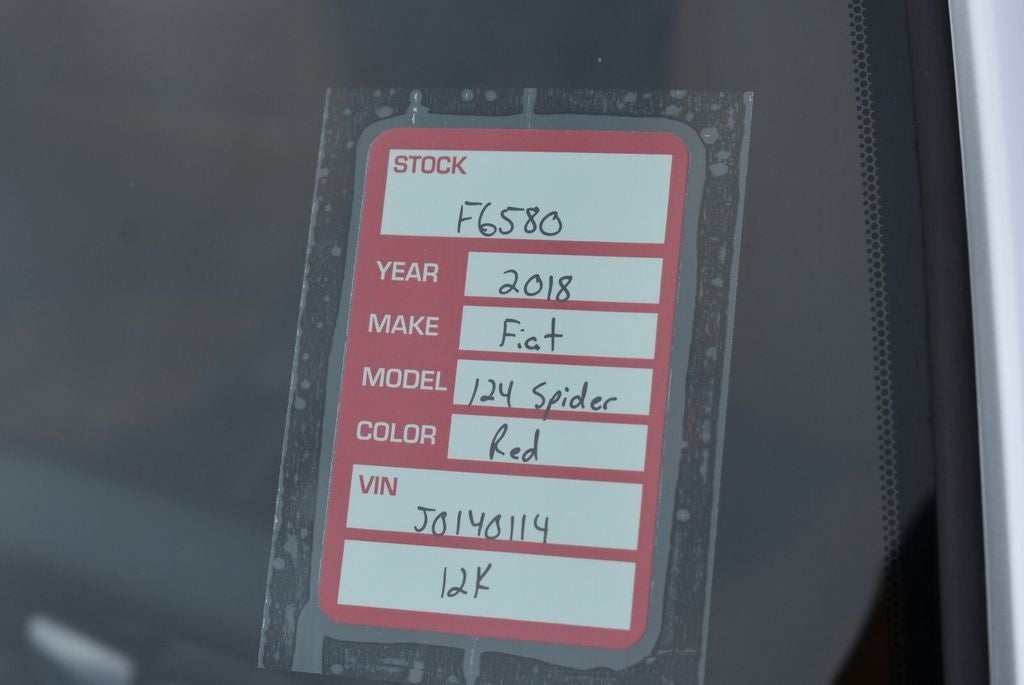 STOCK
F6580
YEAR 2018
MAKE Fiat
MODEL 124 Spider
COLOR Red
VIN
J0140114
12K